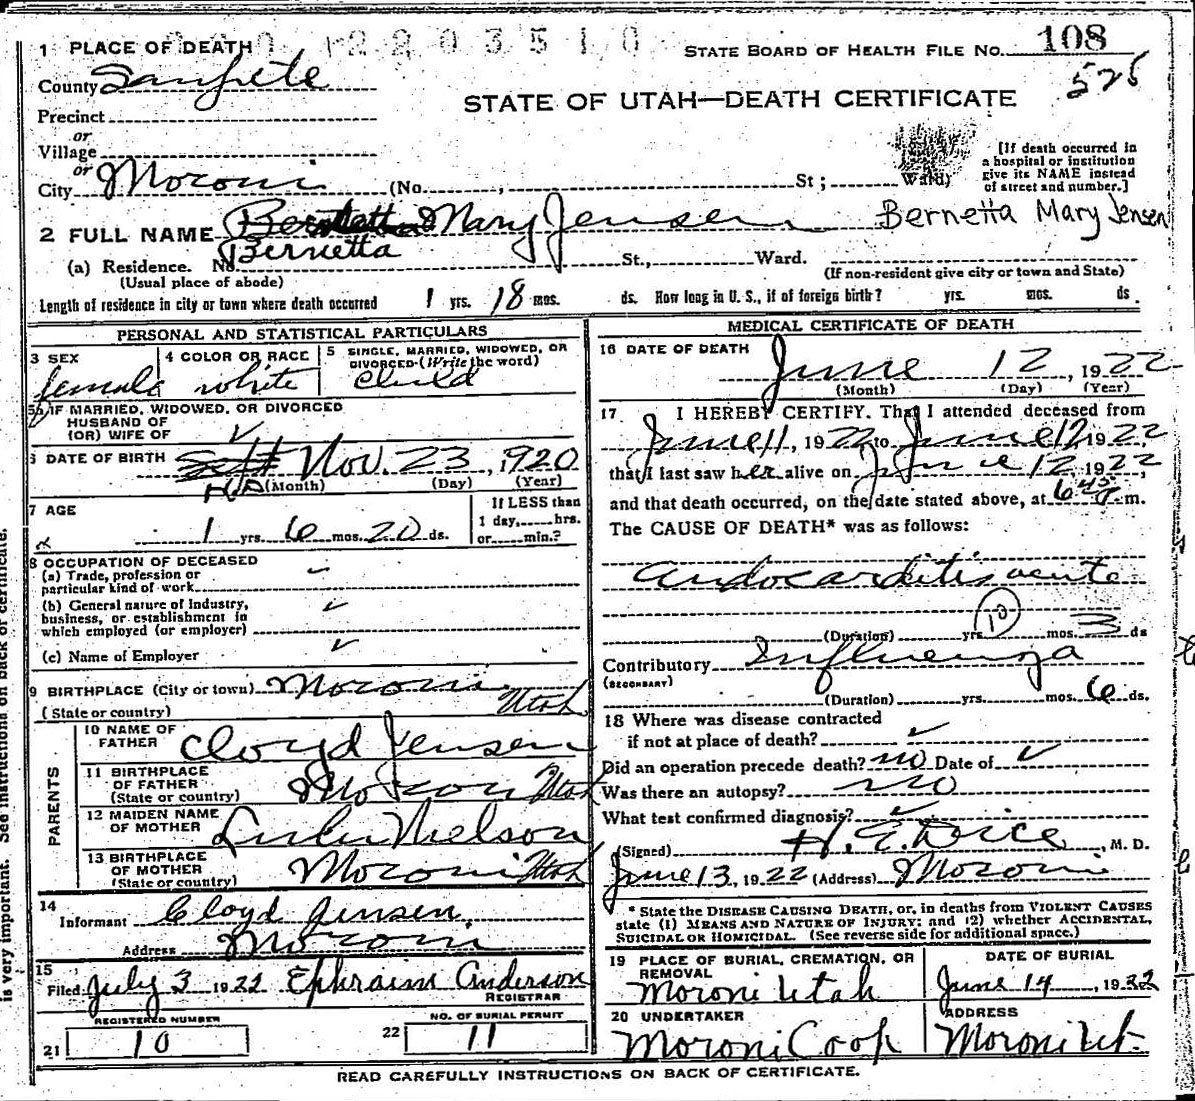 2203510
1 PLACE OF DEATH
STATE BOARD OF HEALTH FILE No. 108
County Sanpete
525
STATE OF UTAH—DEATH CERTIFICATE
Precinct
or
Village
or
City Moroni (No. , St ; Ward)
[If death occurred in a hospital or institution give its NAME instead of street and number.]
2 FULL NAME Mary Jensen Bernetta Mary Jensen
Bernetta
(a) Residence. No. St., Ward.
(Usual place of abode)
(If non-resident give city or town and State)
Length of residence in city or town where death occurred 1 yrs. 18 mos. ds. How long in U. S., if of foreign birth? yrs. mos. ds.
PERSONAL AND STATISTICAL PARTICULARS
3 SEX female
4 COLOR OR RACE white
5 SINGLE, MARRIED, WIDOWED, OR DIVORCED (Write the word) Child
5a IF MARRIED, WIDOWED, OR DIVORCED
HUSBAND OF
(OR) WIFE OF ✓
6 DATE OF BIRTH Nov. 23, 1920
(Month) (Day) (Year)
7 AGE
1 yrs. 6 mos. 20 ds.
If LESS than 1 day,......hrs. or......min.?
8 OCCUPATION OF DECEASED
(a) Trade, profession or particular kind of work
(b) General nature of industry, business, or establishment in which employed (or employer) ✓
(c) Name of Employer ✓
9 BIRTHPLACE (City or town) Moroni
(State or country) Utah
PARENTS
10 NAME OF FATHER Cloyd Jensen
11 BIRTHPLACE OF FATHER (State or country) Moroni Utah
12 MAIDEN NAME OF MOTHER Nielson
13 BIRTHPLACE OF MOTHER (State or country) Moroni Utah
14 Informant Cloyd Jensen
Address Moroni
15 Filed July 3 1922 Ephraim Anderson
REGISTRAR
REGISTERED NUMBER
21 10
NO. OF BURIAL PERMIT
22 11
MEDICAL CERTIFICATE OF DEATH
16 DATE OF DEATH
June 12, 1922
(Month) (Day) (Year)
17 I HEREBY CERTIFY. That I attended deceased from
June 11, 1922 to June 12 1922,
that I last saw her alive on June 12, 1922,
and that death occurred, on the date stated above, at 6 45 m.
The CAUSE OF DEATH* was as follows:
Endocarditis acute
10
(Duration) yrs. mos. 3 ds
Contributory Influenza
(SECONDARY)
(Duration) yrs. mos. 6 ds.
18 Where was disease contracted
if not at place of death? ✓
Did an operation precede death? no Date of ✓
Was there an autopsy? no
What test confirmed diagnosis? ✓
(Signed) , M. D.
June 13, 1922 (Address) Moroni
* State the DISEASE CAUSING DEATH, or, in deaths from VIOLENT CAUSES
state (1) MEANS AND NATURE OF INJURY; and (2) whether ACCIDENTAL,
SUICIDAL OR HOMICIDAL. (See reverse side for additional space.)
19 PLACE OF BURIAL, CREMATION, OR REMOVAL
Moroni Utah
DATE OF BURIAL
June 14, 1922
20 UNDERTAKER
Moroni Coop
ADDRESS
Moroni Ut.
READ CAREFULLY INSTRUCTIONS ON BACK OF CERTIFICATE.
is very important. See instructions on back of certificate.